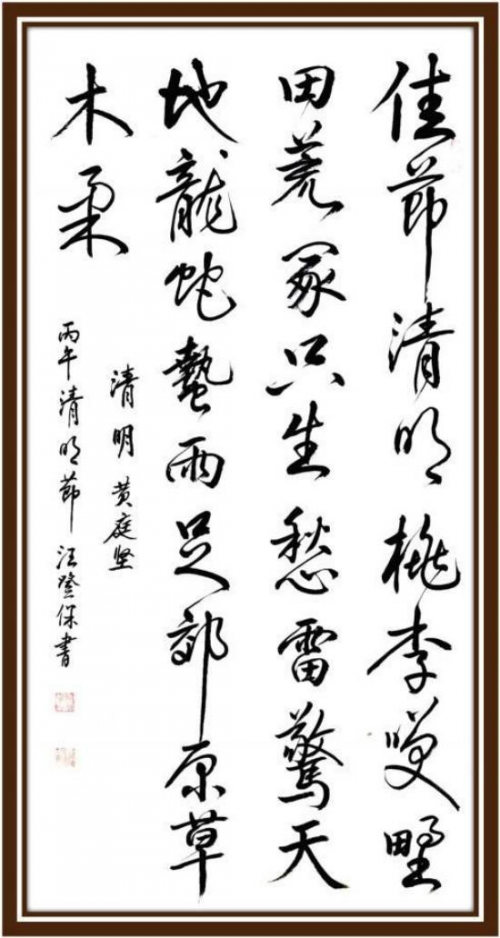 佳节清明桃李笑野
田荒冢只生愁雷惊天
地龙蛇蛰雨足郊原草
木柔
清明 黄庭坚
丙午清明节汪登保书